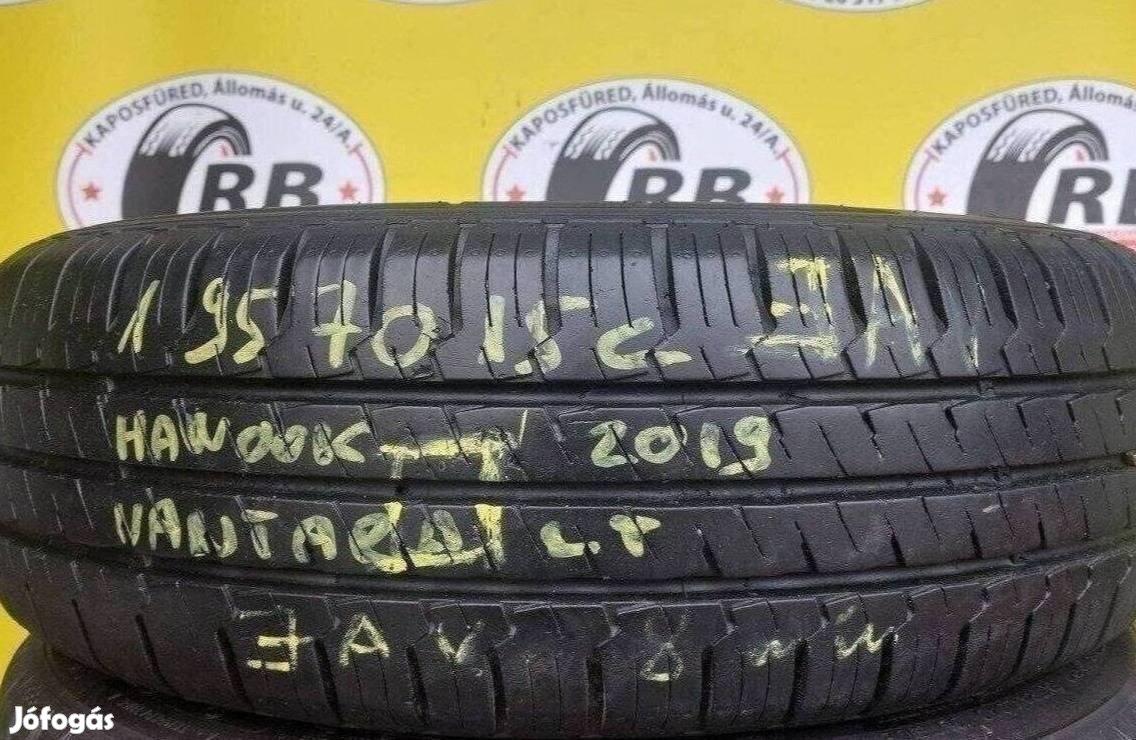 KAPOSFÜRED, Állomás u. 24/A.
RB
KAPOSFÜRED, Állomás u. 24/A.
RB
KAPOSFÜRED, Állomás
RB
195 70 15c JAV
HANOOK 2019
VANTARA LT
JAV 8 mm
Jófogás